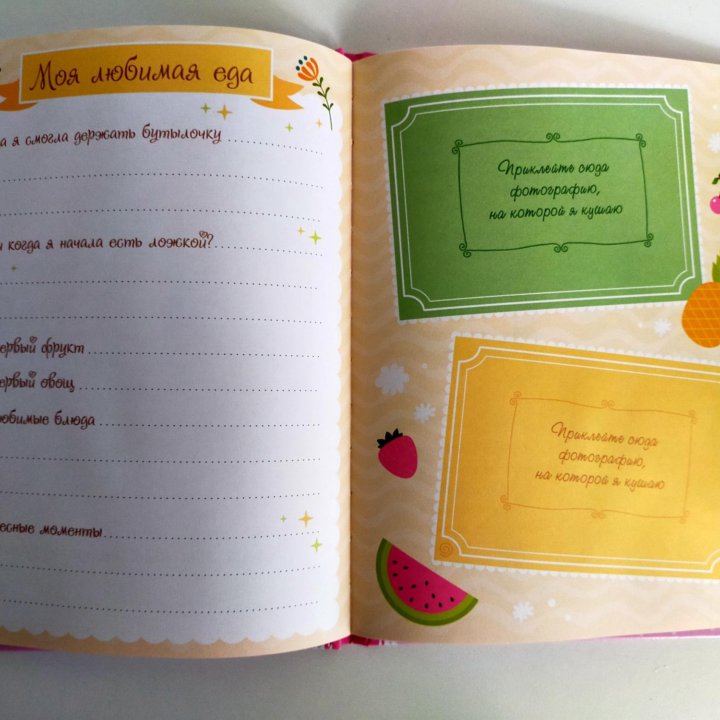 Моя любимая еда
а я смогла держать бутылочку
и когда я начала есть ложкой?
ервый фрукт
ервый овощ
юбимые блюда
есные моменты
Приклейте сюда
фотографию,
на которой я кушаю
Приклейте сюда
фотографию,
на которой я кушаю